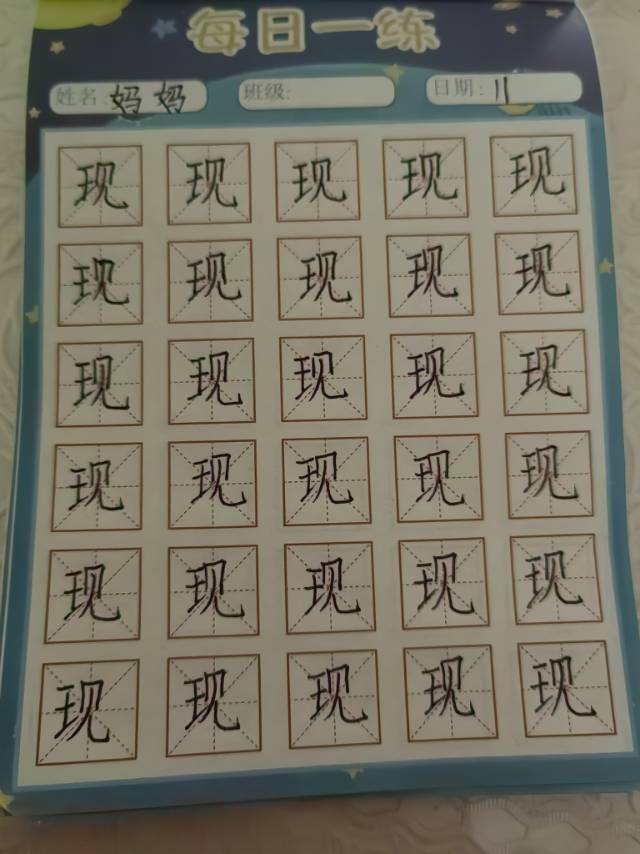 每日一练
姓名: 妈妈 班级: 日期: 11
现 现 现 现 现
现 现 现 现 现
现 现 现 现 现
现 现 现 现 现
现 现 现 现 现
现 现 现 现 现